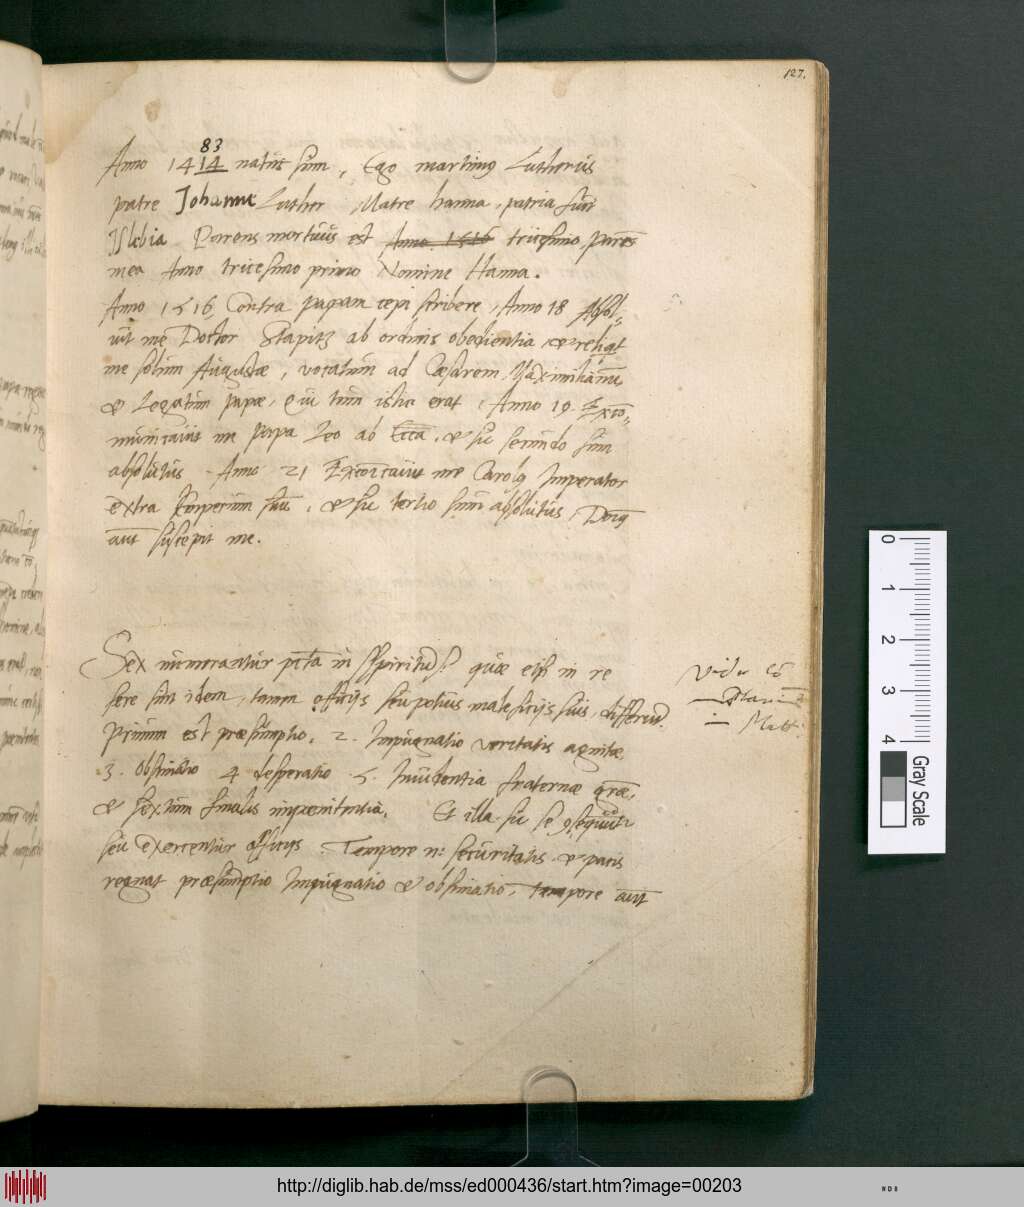 127.
83
Anno 1414 natus sum, Ego martinus Lutherus
patre Johanne Luther Matre hanna, patria sum
Islebia Parens mortuus est Anno 1516 tricesimo, parēs
mea Anno tricesimo primo Nomine Hanna.
Anno 1516 Contra papam cepi scribere, Anno 18 Absol-
uit me Doctor Stapitz ab ordinis obedientia et reliqt
me solum Augustæ, vocatum ad Cæsarem Maximilianum
et Legatum papæ, qui tum istic erat, Anno 19. Exco-
municauit me Papa Leo ab Eccā. et sic secundo sum
absolutus. Anno 21 Excōicauit me Carolus Imperator
extra Imperium suū, et sic tertio sum absolutus, Dominus
aut suscepit me.
Sex numerantur pctā in Spiritū S. quæ etsi in re
fere sint idem, tamen officijs seu potius maleficijs suis, differūt.
Primum est præsumptio. 2. Impugnatio veritatis agnitæ,
3. Obstinatio 4 desperatio 5. Inuidentia fraternæ grāe,
et sextum finalis inpœnitentia. Et illa sic se
seu exercentur officijs. Tempore n: securitatis et pacis
regnat præsumptio Impugnatio et obstinatio, tempore aut
Vide
Matt.
0
1
2
3
4
Gray Scale
http://diglib.hab.de/mss/ed000436/start.htm?image=00203